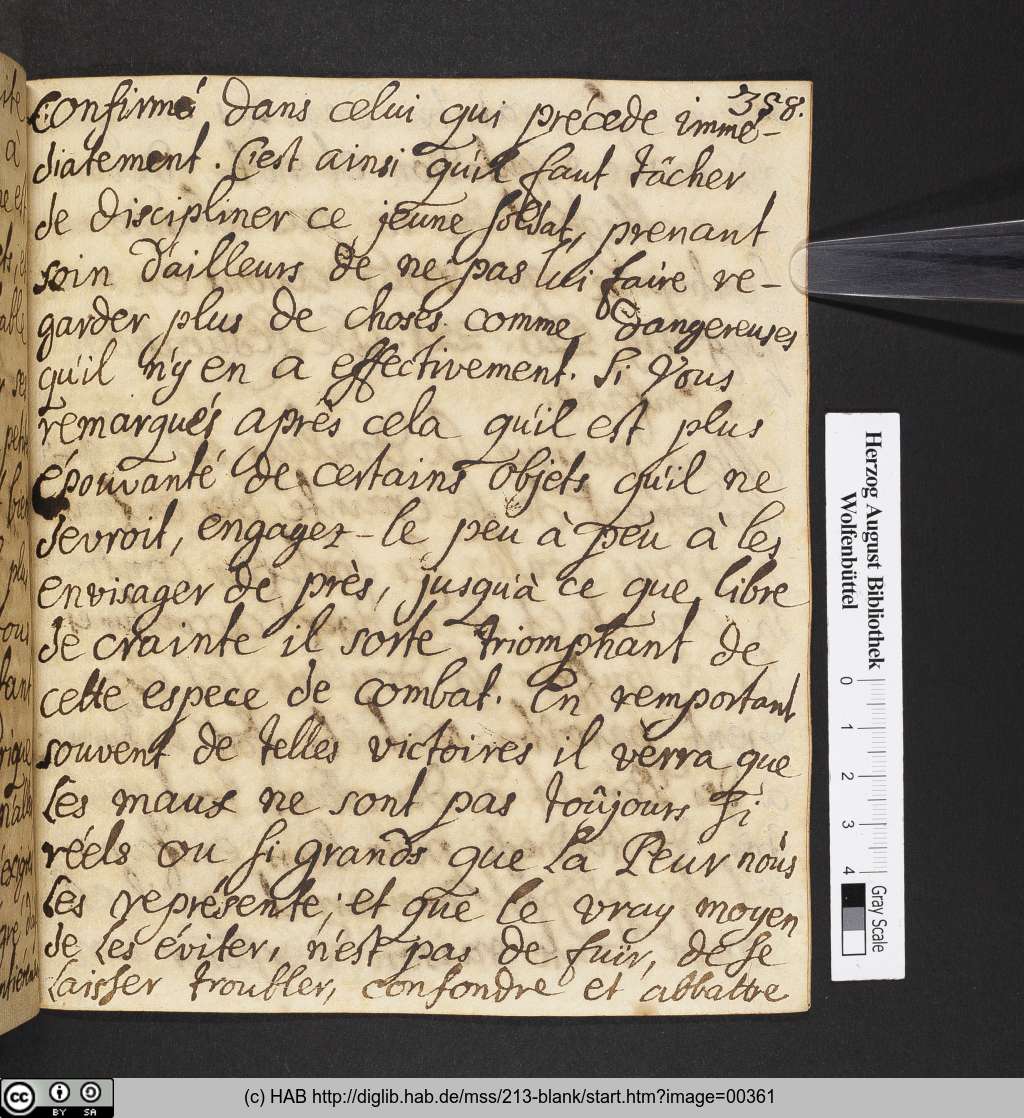 358.
confirmé dans celui qui précede immé-
diatement. C'est ainsi qu'il faut tâcher
de discipliner ce jeune soldat, prenant
soin d'ailleurs de ne pas lui faire re-
garder plus de choses comme dangereuses
qu'il n'y en a effectivement. Si vous
remarqués après cela qu'il est plus
épouvanté de certains objets qu'il ne
devroit, engagez-le peu à peu à les
envisager de près, jusqu'à ce que libre
de crainte il sorte triomphant de
cette espece de combat. En remportant
souvent de telles victoires il vèrra que
les maux ne sont pas toûjours si
réels ou si grands que la Peur noùs
les représente; et que le vray moyen
de les éviter, n'est pas de fuïr, de se
laisser troubler, confondre et abbattre
Herzog August Bibliothek
Wolfenbüttel
0 1 2 3 4
Gray Scale
cc BY SA
(c) HAB http://diglib.hab.de/mss/213-blank/start.htm?image=00361